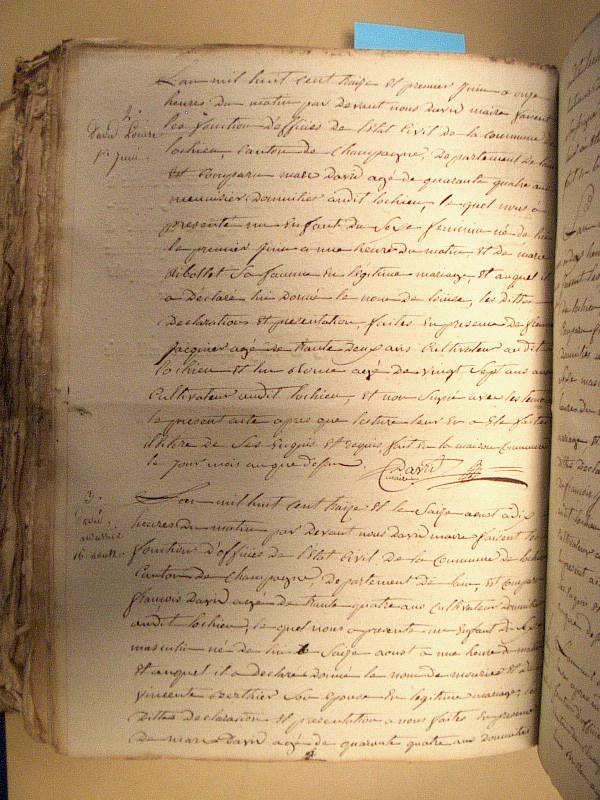 L'an mil huit cent traize et premier juin a onze
heures du matin par devant nous david maire faisant
2.
David Louise
1er juin
les fonction d'officier de l'état Civil de la commune de
lochieu, Canton de Champagne, Departement de lain
est Comparu marc David agé de quarante quatre ans
meunisier domicilier audit lochieu, le quel nous a
presenté un Enfant du Sexe feminin né de hier
le premier juin a une heure du matin et de marie
Sa famme en legitime mariage, et auquel il
a Declaré lui donné le nom de loiuse, les dittes
Declarations et presentation, faites En presence de
jacquier agé de trante deux ans Cultivateur audit
lochieu et agé de vingt Sept ans
Cultivateur audit lochieu, et non Signé avec les temoins
le present acte apres que lecture leur En a eté faite
de Ses Enquis et requis, fait En la maison Commune
le jour mois an que dessus. David
maire
3.
David
16 aout
L'an mil huit cent traize et le Saize aout a dix
heures du matin par Devant nous David maire faisent les
fonctions d'officier de l'état Civil de la Commune de lochieu
Canton de Champagne, Departement de lain, est Comparu
françois David agé de trante quatre ans Cultivateur domicilié
audit lochieu, le quel nous a presenté un Enfant de Sexe
masculin né de hier le Saize aout a une heure du matin
et auquel il a Declaré donné le nom de et de
vincente berthier Son Epouse En legitime mariage, les
dittes Declaration et presentation a nous faites En presence
De marc David agé de quarante quatre ans Domicilié